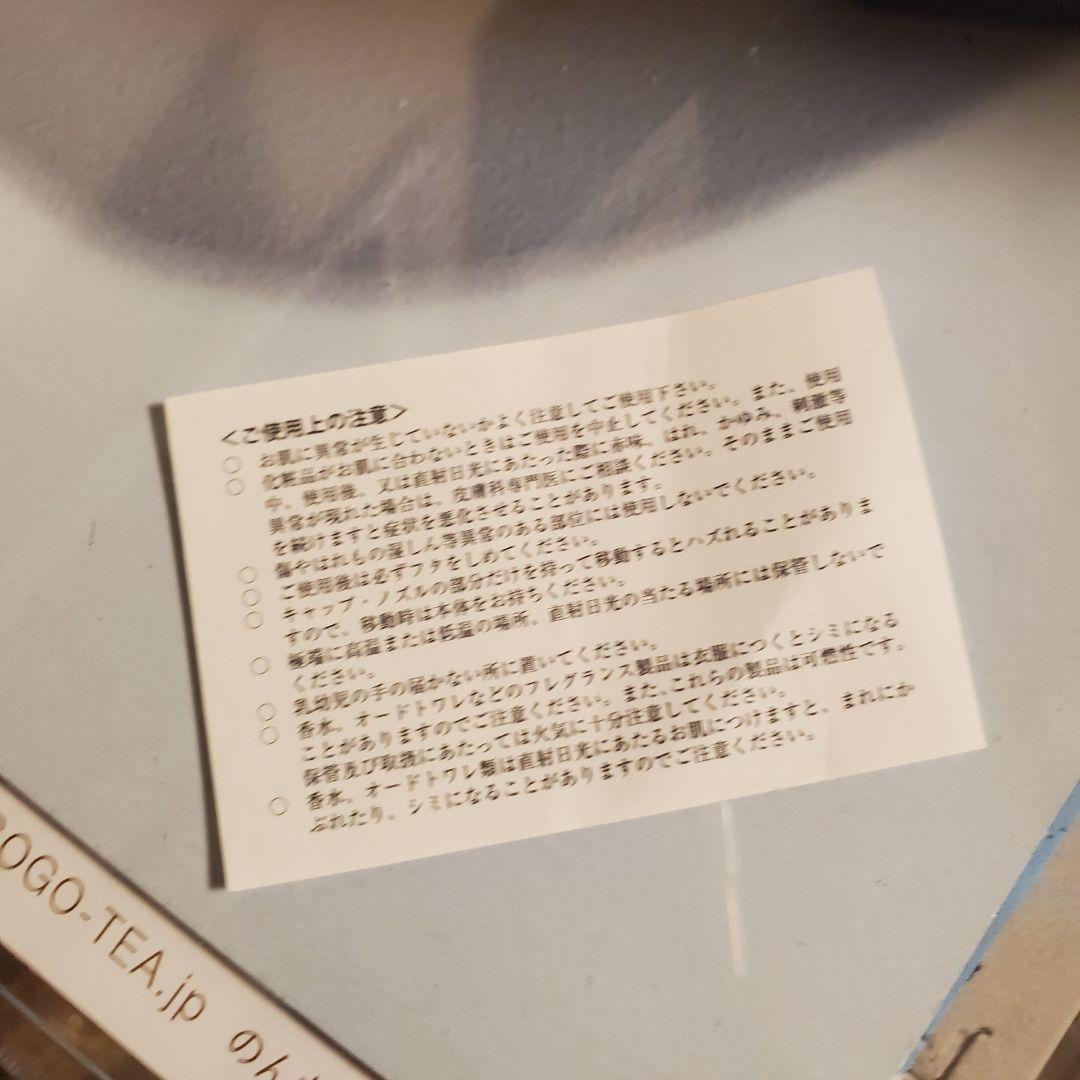 <ご使用上の注意>
○ お肌に異常が生じていないかよく注意してご使用下さい。
○ 化粧品がお肌に合わないときはご使用を中止してください。また、使用
中、使用後、又は直射日光にあたった際に赤味、はれ、かゆみ、刺激等
異常が現れた場合は、皮膚科専門医にご相談ください。そのままご使用
を続けますと症状を悪化させることがあります。
○ 傷やはれもの湿しん等異常のある部位には使用しないでください。
○ ご使用後は必ずフタをしめてください。
○ キャップ・ノズルの部分だけを持って移動するとハズれることがありま
すので、移動時は本体をお持ちください。
○ 極端に高温または低温の場所、直射日光の当たる場所には保管しないで
ください。
○ 乳幼児の手の届かない所に置いてください。
○ 香水、オードトワレなどのフレグランス製品は衣服につくとシミになる
ことがありますのでご注意ください。また、これらの製品は可燃性です。
保管及び取扱にあたっては火気に十分注意してください。
○ 香水、オードトワレ類は直射日光にあたるお肌につけますと、まれにか
ぶれたり、シミになることがありますのでご注意ください。
OGO-TEA.jp のん